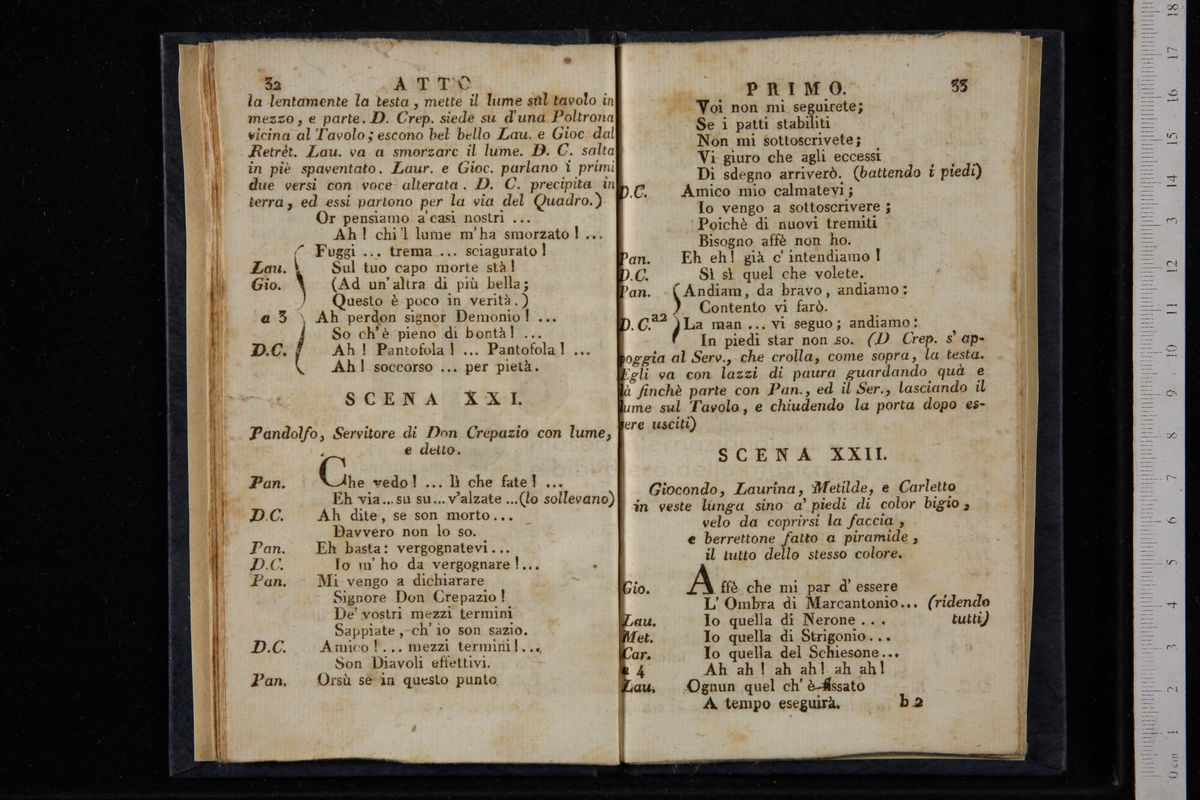 32 ATTO
la lentamente la testa, mette il lume sul tavolo in
mezzo, e parte. D. Crep. siede su d'una Poltrona
vicina al Tavolo; escono bel bello Lau. e Gioc dal
Retrèt. Lau. va a smorzare il lume. D. C. salta
in piè spaventato. Laur. e Gioc. parlano i primi
due versi con voce alterata. D. C. precipita in
terra, ed essi partono per la via del Quadro.)
Or pensiamo a'casi nostri ...
Ah! chi'l lume m'ha smorzato! ...
Fuggi ... trema ... sciagurato!
Lau. Sul tuo capo morte stà!
Gio. (Ad un'altra di più bella;
Questo è poco in verità.)
a 3 Ah perdon signor Demonio! ...
So ch'è pieno di bontà! ...
D.C. Ah! Pantofola! ... Pantofola! ...
Ah! soccorso ... per pietà.
SCENA XXI.
Pandolfo, Servitore di Don Crepazio con lume,
e detto.
Pan. Che vedo! ... lì che fate! ...
Eh via...su su...v'alzate...(lo sollevano)
D.C. Ah dite, se son morto...
Davvero non lo so.
Pan. Eh basta: vergognatevi...
D.C. Io m'ho da vergognare!...
Pan. Mi vengo a dichiarare
Signore Don Crepazio!
De' vostri mezzi termini
Sappiate, ch'io son sazio.
D.C. Amico!... mezzi termini!...
Son Diavoli effettivi.
Pan. Orsù se in questo punto
PRIMO. 33
Voi non mi seguirete;
Se i patti stabiliti
Non mi sottoscrivete;
Vi giuro che agli eccessi
Di sdegno arriverò. (battendo i piedi)
D.C. Amico mio calmatevi;
Io vengo a sottoscrivere;
Poichè di nuovi tremiti
Bisogno affè non ho.
Pan. Eh eh! già c'intendiamo!
D.C. Sì sì quel che volete.
Pan. Andiam, da bravo, andiamo:
Contento vi farò.
D.C. a2 La man ... vi seguo; andiamo:
In piedi star non so. (D Crep. s'ap-
poggia al Serv., che crolla, come sopra, la testa.
Egli va con lazzi di paura guardando quà e
là finchè parte con Pan., ed il Ser., lasciando il
lume sul Tavolo, e chiudendo la porta dopo es-
sere usciti)
SCENA XXII.
Giocondo, Laurina, Metilde, e Carletto
in veste lunga sino a' piedi di color bigio,
velo da coprirsi la faccia,
e berrettone fatto a piramide,
il tutto dello stesso colore.
Gio. Affè che mi par d'essere
L'Ombra di Marcantonio... (ridendo
Lau. Io quella di Nerone... tutti)
Met. Io quella di Strigonio...
Car. Io quella del Schiesone...
a 4 Ah ah! ah ah! ah ah!
Lau. Ognun quel ch'è fissato
A tempo eseguirà. b 2
0 cm 1 2 3 4 5 6 7 8 9 10 11 12 13 14 15 16 17 18